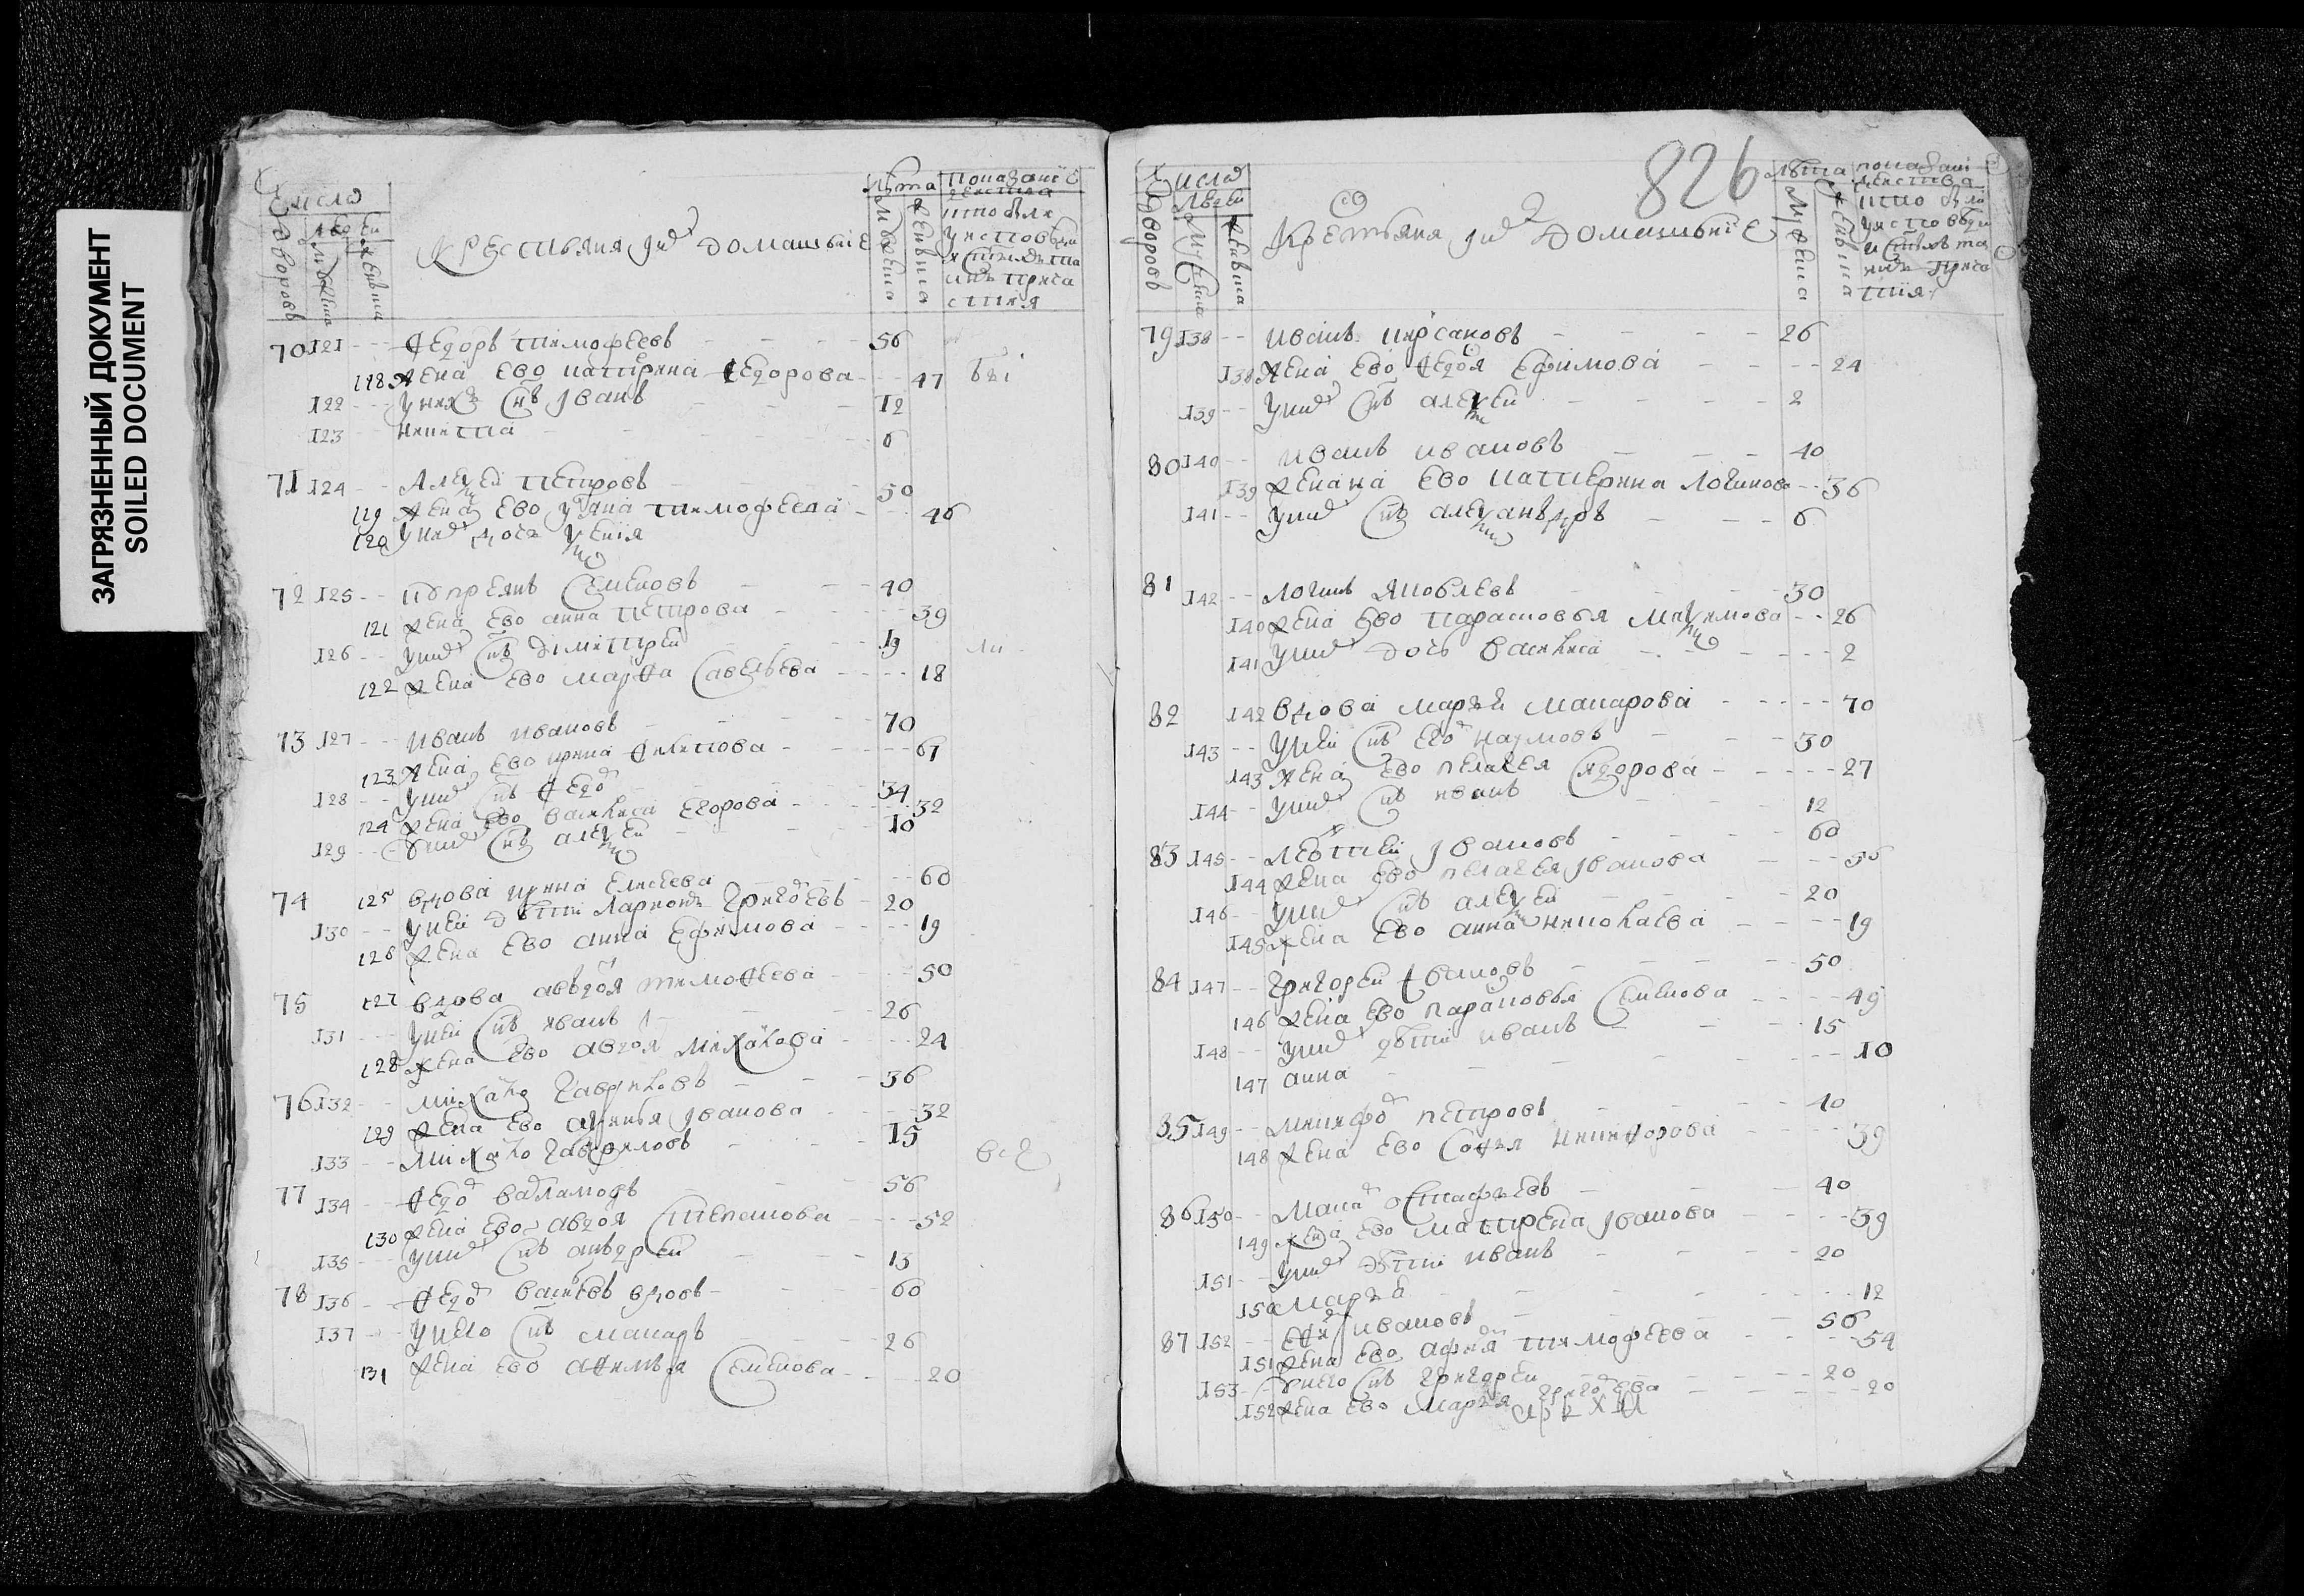 ЗАГРЯЗНЕННЫЙ ДОКУМЕНТ
SOILED DOCUMENT
Числа
дворовъ
людей
мужеска
женьска
Крестьяня ихъ домашьние
лѣта
мужеска
женьска
показание
70 121 Федоръ тимофеевъ 56
118 жена ево катирина Федорова 47
122 у них снъ иванъ 12
123 никита 6
71 124 Алексей Петровъ 50
119 жена ево ульяна тимофеева 46
120 у них дочь Ксения
72 125 Семеновъ 40
121 жена ево анна петрова 39
126 у них снъ димитрей 19
122 жена ево марфа Савельева 18
73 127 иванъ ивановъ 70
123 жена ево ирина филипова 67
128 у них снъ Федоръ 34
124 жена ево василиса егорова 32
129 у них снъ алексей 10
74 125 вдова ирина елисеева 60
130 у ней дѣти Ларионъ Григорьевъ 20
126 жена ево анна ефимова 19
75 127 вдова авьдотя тимофеева 50
131 у ней снъ иванъ 26
128 жена ево авдотя михайлова 24
76 132 михайло Гаврилавъ 36
129 жена ево ивановa 32
133 михайло гавриловъ 15
77 134 Федоръ варламовъ 56
130 жена ево авдотя Степанова 52
135 у них снъ аньдрей 13
78 136 Федоръ васильевъ вдовъ 60
137 у нево снъ макаръ 26
131 жена ево афимья Семенова 20
826
Числа
дворовъ
людей
мужеска
женьска
Крестьяня ихъ домашьние
лѣта
мужеска
женьска
показание
79 138 иванъ кирсановъ 26
138 жена ево федося Ефимова 24
139 у них снъ алексей 2
80 140 иванъ ивановъ 40
139 жена ево катерина Логинова 36
141 у них снъ алексанъдръ 6
81 142 логинъ яковлевъ 30
140 жена ево парасковья максимова 26
141 у них дочь василиса 2
82 142 вдова марья макарова 70
143 у ней снъ егоръ наумовъ 30
143 жена ево пелагея Сидорова 27
144 у них снъ иванъ 12
83 145 левътей ивановъ 60
144 жена ево пелагея иванова 56
146 у них снъ алексей 20
145 жена ево анна николаева 19
84 147 григорей ивановъ 50
146 жена ево парасковья Семенова 49
148 у них дѣти иванъ 15
147 анна 10
85 149 никифоръ петровъ 40
148 жена ево Софья никифорова 39
86 150 макаръ остафьевъ 40
149 жена ево матрена иванова 39
151 у них дѣти иванъ 20
150 марфа 12
87 152 ефимъ ивановъ 56
151 жена ево тимофеева 54
153 у нево снъ григорей 20
152 жена ево марья григорьева 20